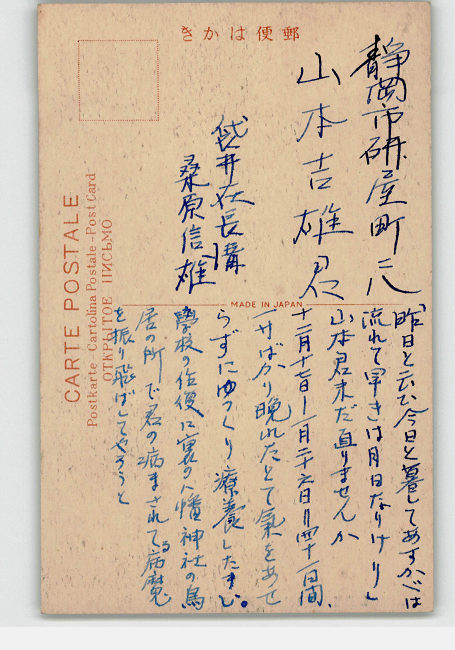 郵便はかき
静岡市研屋町二八
山本吉雄君
袋井在長溝
桑原信雄
CARTE POSTALE
Postkarte-Cartolina Postale-Post Card
ОТКРЫТОЕ ПИСЬМО
MADE IN JAPAN
「昨日と云ひ今日と暮してあすかゞは
流れて早きは月日なりけり」
山本君未だ直りませんか
十二月十七日ー一月二十六日=四十一日間、
ばかり晩れたとて氣をあせ
らずにゆつくり療養したまひ。
學校の 便に裏の八幡神社の鳥
居の所で君の病まされてる病魔
を振り飛ばしてやらうと